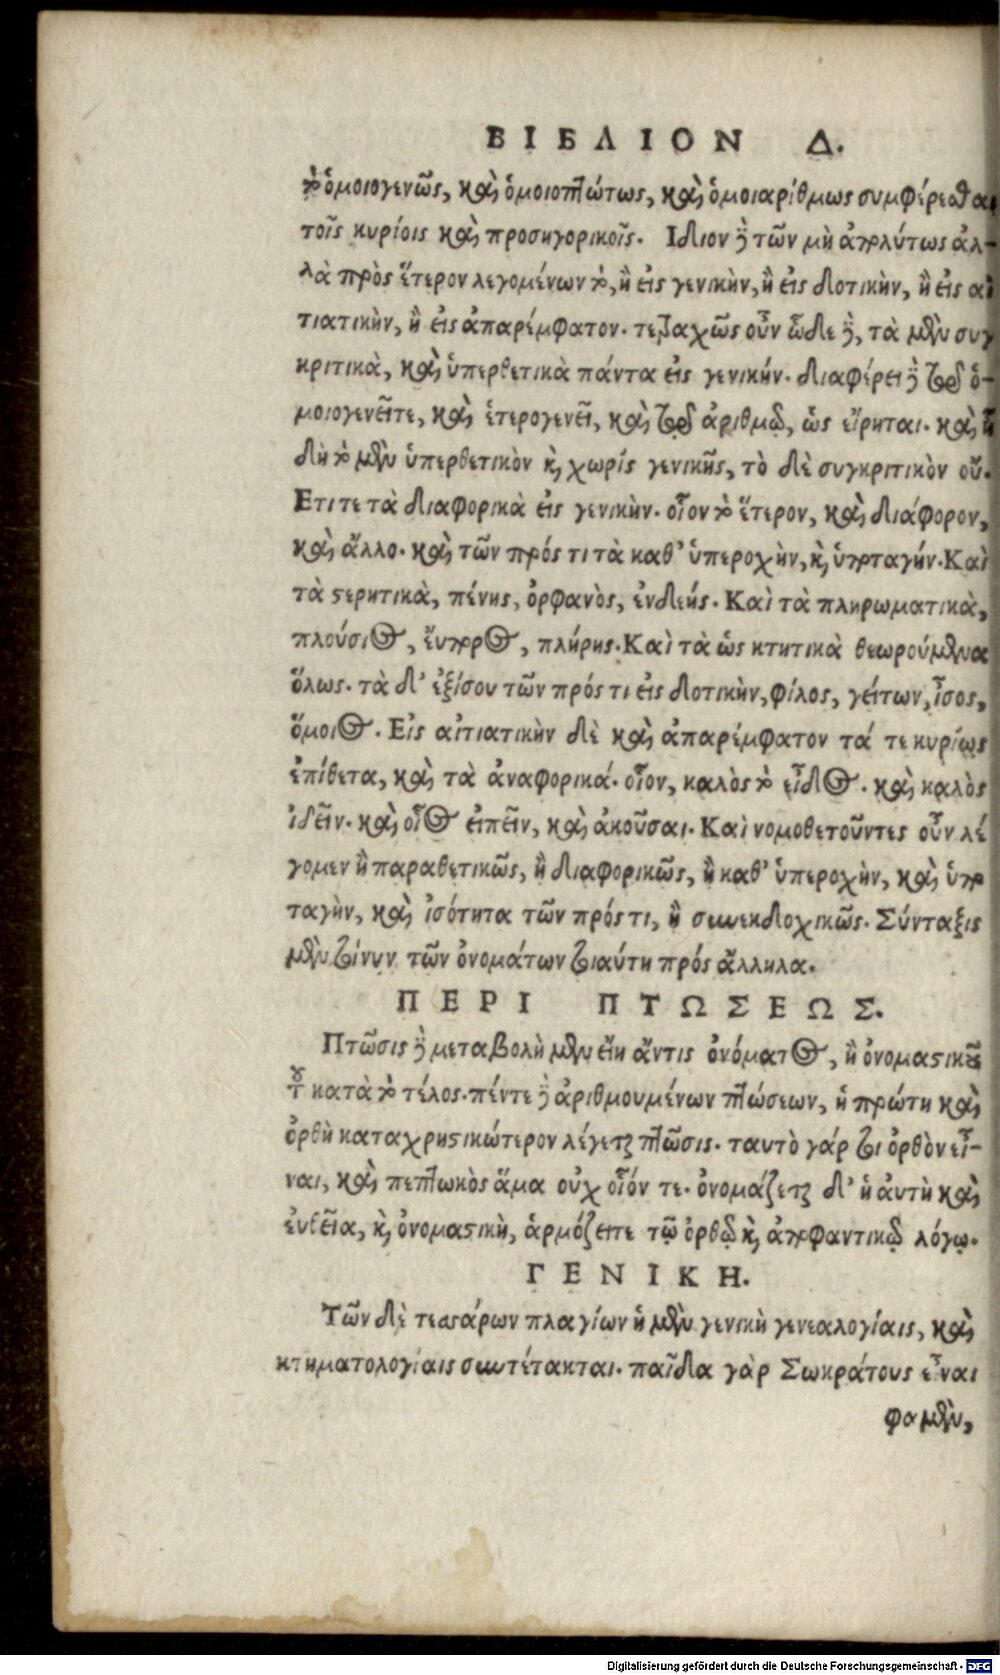 ΒΙΒΛΙΟΝ Δ.
τὸ ὁμοιογενῶς, καὶ ὁμοιοπτώτως, καὶ ὁμοιαρίθμως συμφέρεσθαι
τοῖς κυρίοις καὶ προσηγορικοῖς. Ιδιον δὲ τῶν μὴ ἀπολύτως ἀλ-
λὰ πρὸς ἕτερον λεγομένων τὸ, ἢ εἰς γενικὴν, ἢ εἰς δοτικὴν, ἢ εἰς αἰ
τιατικὴν, ἢ εἰς ἀπαρέμφατον. τετραχῶς οὖν ὧδε δὲ, τὰ μὲν συγ
κριτικὰ, καὶ ὑπερθετικὰ πάντα εἰς γενικήν. διαφέρει δὲ τῷ ὁ-
μοιογενεῖτε, καὶ ἑτερογενεῖ, καὶ τῷ ἀριθμῷ, ὡς εἴρηται. καὶ ἤ
δη τὸ μὲν ὑπερθετικὸν καὶ χωρίς γενικῆς, τὸ δὲ συγκριτικὸν οὔ.
Ετι τε τὰ διαφορικὰ εἰς γενικὴν. οἷον τὸ ἕτερον, καὶ διάφορον,
καὶ ἄλλο. καὶ τῶν πρός τι τὰ καθ’ ὑπεροχὴν, καὶ ὑποταγήν. Καὶ
τὰ στερητικὰ, πένης, ὀρφανὸς, ἐνδεής. Καὶ τὰ πληρωματικὰ,
πλούσιος, ἔυπορος, πλήρης. Καὶ τὰ ὡς κτητικὰ θεωρούμενα
ὅλως. τὰ δ’ ἐξίσου τῶν πρός τι εἰς δοτικὴν, φίλος, γείτων, ἶσος,
ὅμοιος. Εἰς αἰτιατικὴν δὲ καὶ ἀπαρέμφατον τά τε κυρίως
ἐπίθετα, καὶ τὰ ἀναφορικά. οἷον, καλὸς τὸ εἶδος. καὶ καλὸς
ἰδεῖν. καὶ οἷος εἰπεῖν, καὶ ἀκοῦσαι. Καὶ νομοθετοῦντες οὖν λέ
γομεν ἢ παραθετικῶς, ἢ διαφορικῶς, ἢ καθ’ ὑπεροχὴν, καὶ ὑπο
ταγὴν, καὶ ἰσότητα τῶν πρός τι, ἢ συνεκδοχικῶς. Σύνταξις
μὲν τοίνυν τῶν ὀνομάτων τοιαύτη πρός ἄλληλα.
ΠΕΡΙ ΠΤΩΣΕΩΣ.
Πτῶσις δὲ μεταβολὴ μὲν εἴη ἄντις ὀνόματος, ἢ ὀνομαστικοῦ
τοῦ κατὰ τὸ τέλος. πέντε δὲ ἀριθμουμένων πτώσεων, ἡ πρώτη καὶ
ὀρθὴ καταχρηστικώτερον λέγεται πτῶσις. ταυτὸ γάρ τοι ὀρθὸν εἶ-
ναι, καὶ πεπτωκὸς ἅμα οὐχ οἷόν τε. ὀνομάζεται δ’ ἡ ἀυτὴ καὶ
ἐυθεῖα, καὶ ὀνομαστικὴ, ἁρμόζειτε τῷ ὀρθῷ καὶ ἀποφαντικῷ λόγῳ.
ΓΕΝΙΚΗ.
Τῶν δὲ τεσσάρων πλαγίων ἡ μὲν γενικὴ γενεαλογίαις, καὶ
κτηματολογίαις συντέτακται. παῖδα γὰρ Σωκράτους εἶναι
φαμὲν,
Digitalisierung gefördert durch die Deutsche Forschungsgemeinschaft - DFG